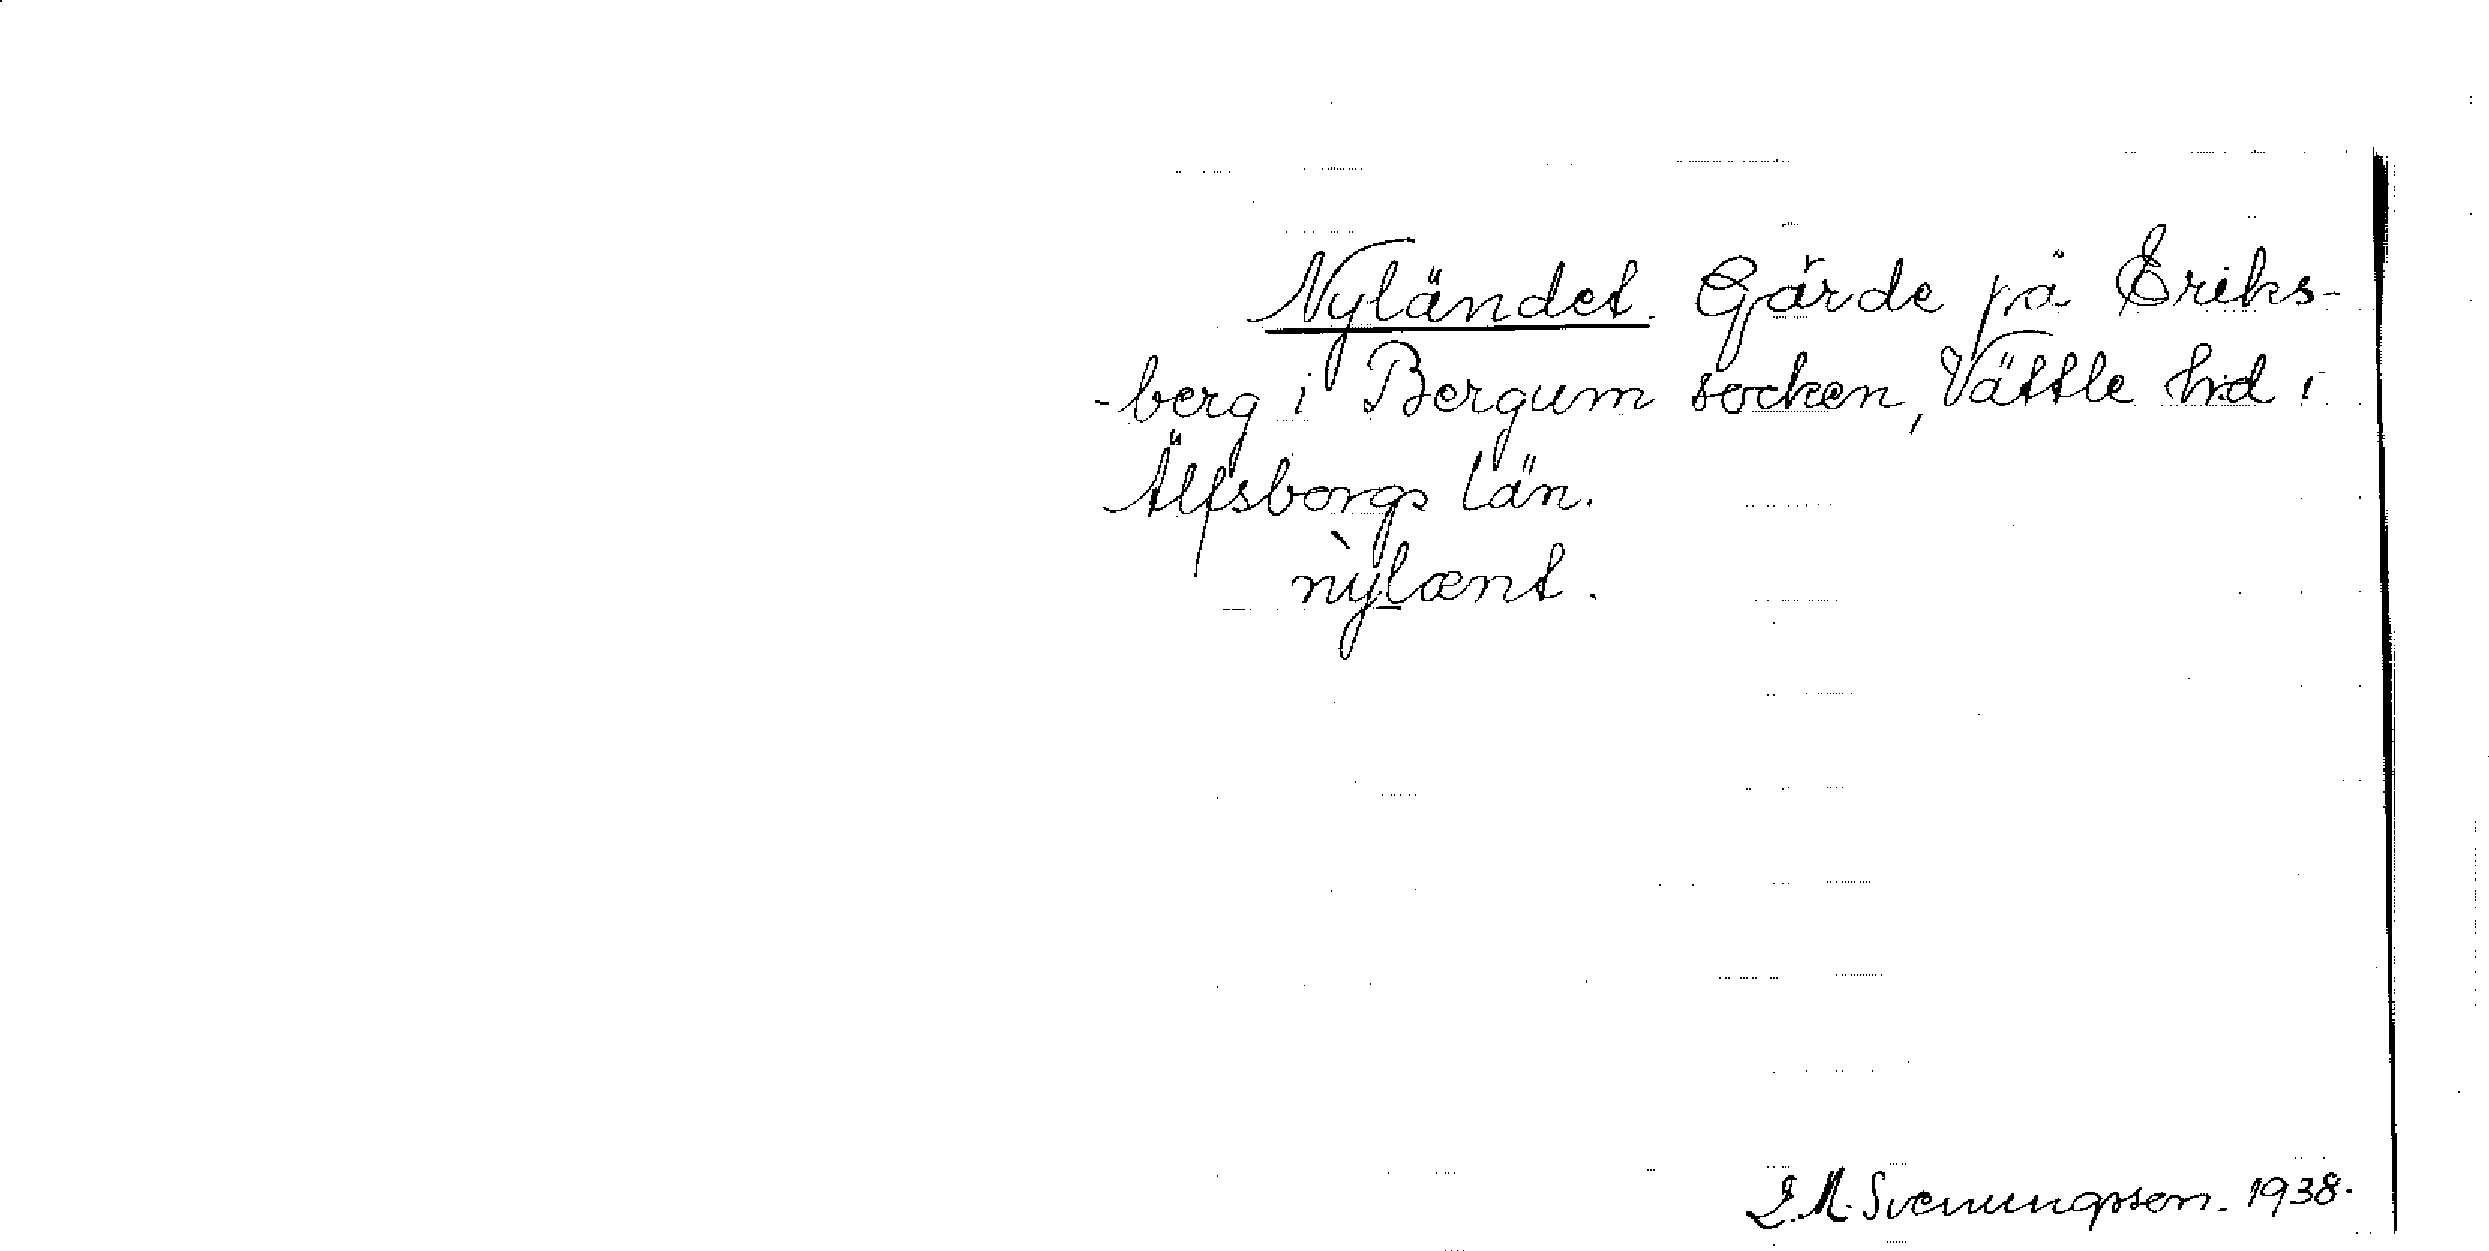 Nyländet. Gärde på Eriks-
-berg i Bergum socken, Vättle hd i
Älfsborgs län.
nỳlænt.
L.M. Svenungsson. 1938.